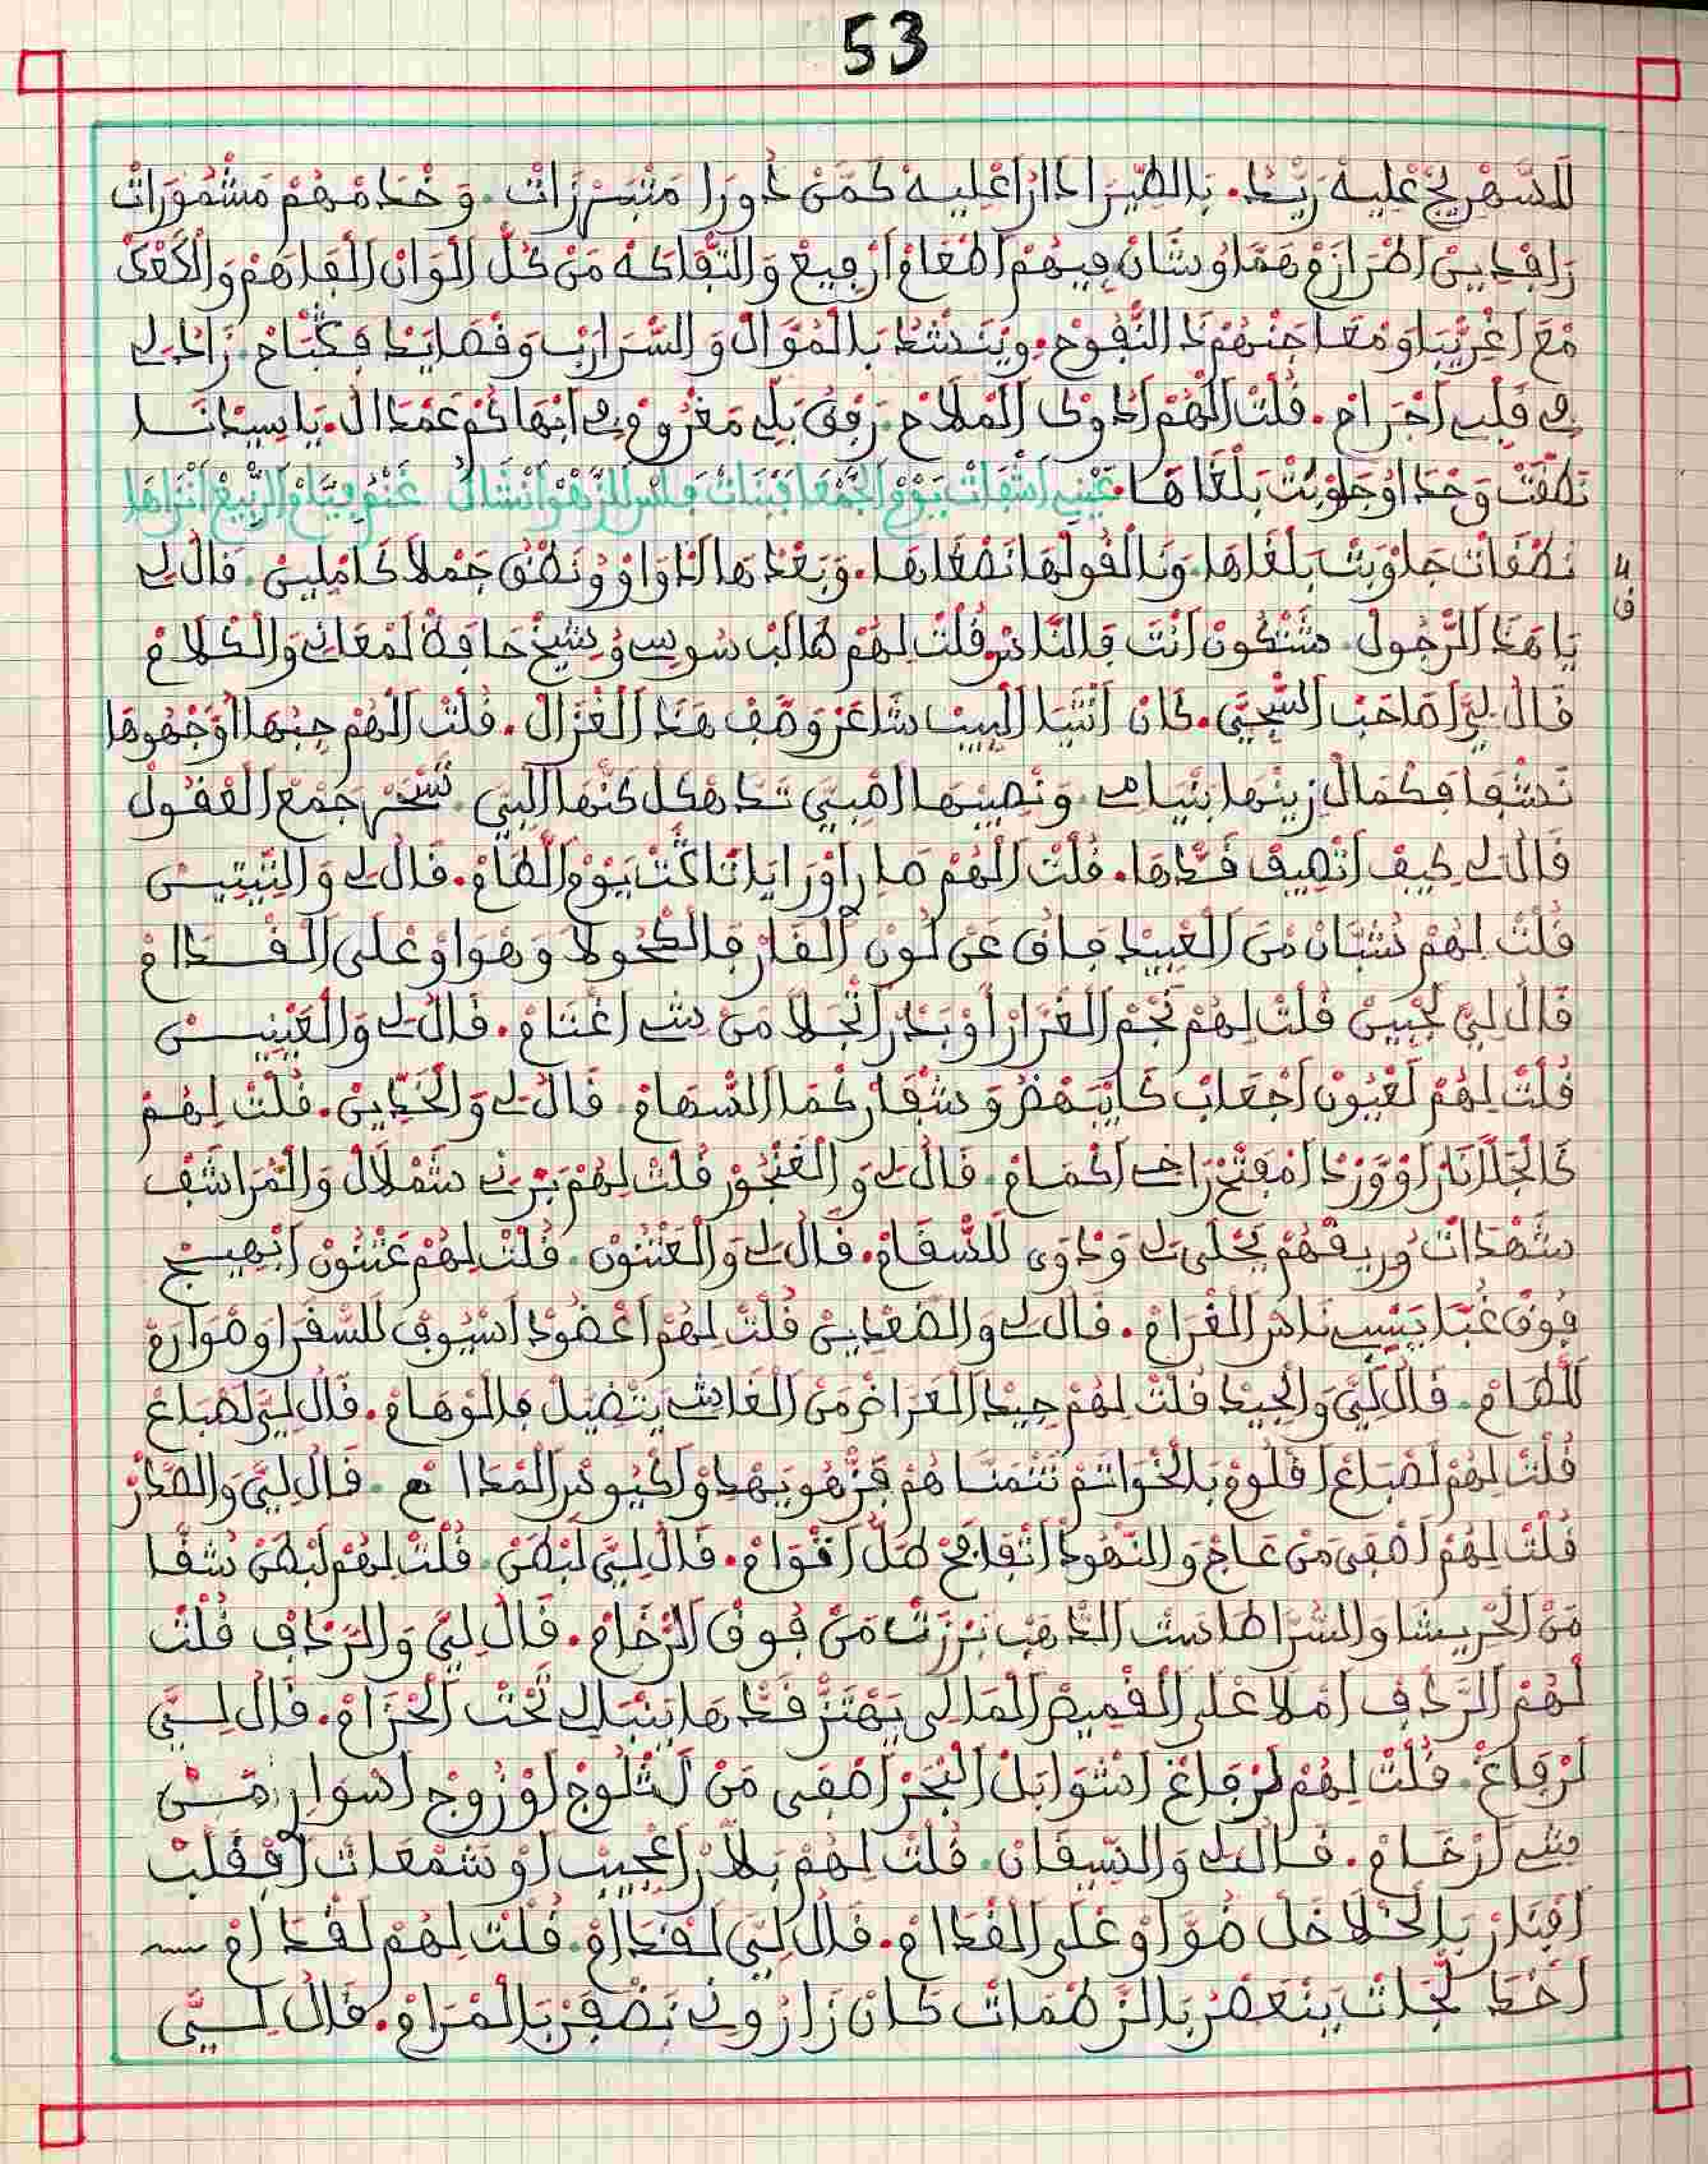 53
للسهريج عليه ريد. بالطيرا دار اعليه كمن دورا متبسرزات. وخدمهم مشمورات
رافدين اطرازم هما وشان فيهم اطعام ارفيع والتفاكه من كل الوان الفاهم والكعك
مع اغريبا ومعاجنهم دا النفوح. وينشد بالموال والسرارب وقصايد فكتاح. زاد لي
في قلبي اجراح. قلت الهم ادوك الملاح. رفق بلي مغروم في ابهاكم عمدا ال. يا سيدنا
نطقت وحدا وجاوبت بلغاها. عيني اشفات يوم الجمعا ابنات فاس للزهو انشال غنم فيام الربيع انزاها
نطقات جاوبت بلغاها. ونا القولها نصغاها. وبعدها لداواو ونطق جملا كاملين. قال لي
ف 4
يا هذا الرجول. شكون انت فالناس قلت لهم طالب سوسي وشيخ حافظ لمعاني والكلام
قال لي اصاحب السجي. كان انتيا لبيب شاعر وصف هذا الغزال. قلت الهم جبها اوجهوها
نشفا فكمال زينها بنيامي ونصيبها الصبي تدهكل كنها البي تسحر جمع العقول
قال لي كيف اتصيف قدها. قلت الهم صاري اورايا تاكت يوم الطام. قال لي والتيتيس
قلت لهم تشبان من العبيد فاق عن لون القار فالكحولا وهواو على القدام
قال لي لجبين قلت لهم نجم الغرار او بدر اتجلا من شي اغتام. قال لي والعينين
قلت لهم لعيون اجعاب كايبهضو وشفار كما السهام. قال لي والخدين. قلت لهم
كالجلانار او وردا مفتح راخي اكمام. قال لي والغنجور قلت لهم برني شملال والمراشف
شهدات وريقهم يحلى لي وداوى للسقام. قال لي والعثنون. قلت لهم عثنون ابهيج
فوق غبا يسبي ناس الغرام. قال لي والضعدين قلت لهم اعضود اسيوف للسفرا وصوارم
للطام. قال لي والجيد قلت لهم جيد العراض من الغاشي يتضيل فالوهام. قال لي لصباع
قلت لهم لصباع اقلوم بالخواتم تتمنا هم فزهو يهدو اكيوس المدام. قال لي والصدر
قلت لهم اصفى من عاج والنهود اتفافح طل اقوام. قال لي لبطن. قلت لهم لبطن شفا
من الحريشا والسرا طاست الذهب نرزت من فوق الرخام. قال لي والرداف قلت
لهم الرداف املا على القميص المالي يهتز قدها بنبالي تحت الحزام. قال لي
لرفاغ. قلت لهم لرفاغ اشوابل البحر اصفى من لثلوج اوزوج اسوار من
شي ارخام. قال لي والسيقان. قلت لهم بلار اعجيب او شمعات افقلب
افنار بالخلاخل ضواو على القدام. قال لي لقدام. قلت لهم لقدام
اخط لجات ينعصر بالزطمات كان زاروني نضفر بالمرام. قال لي